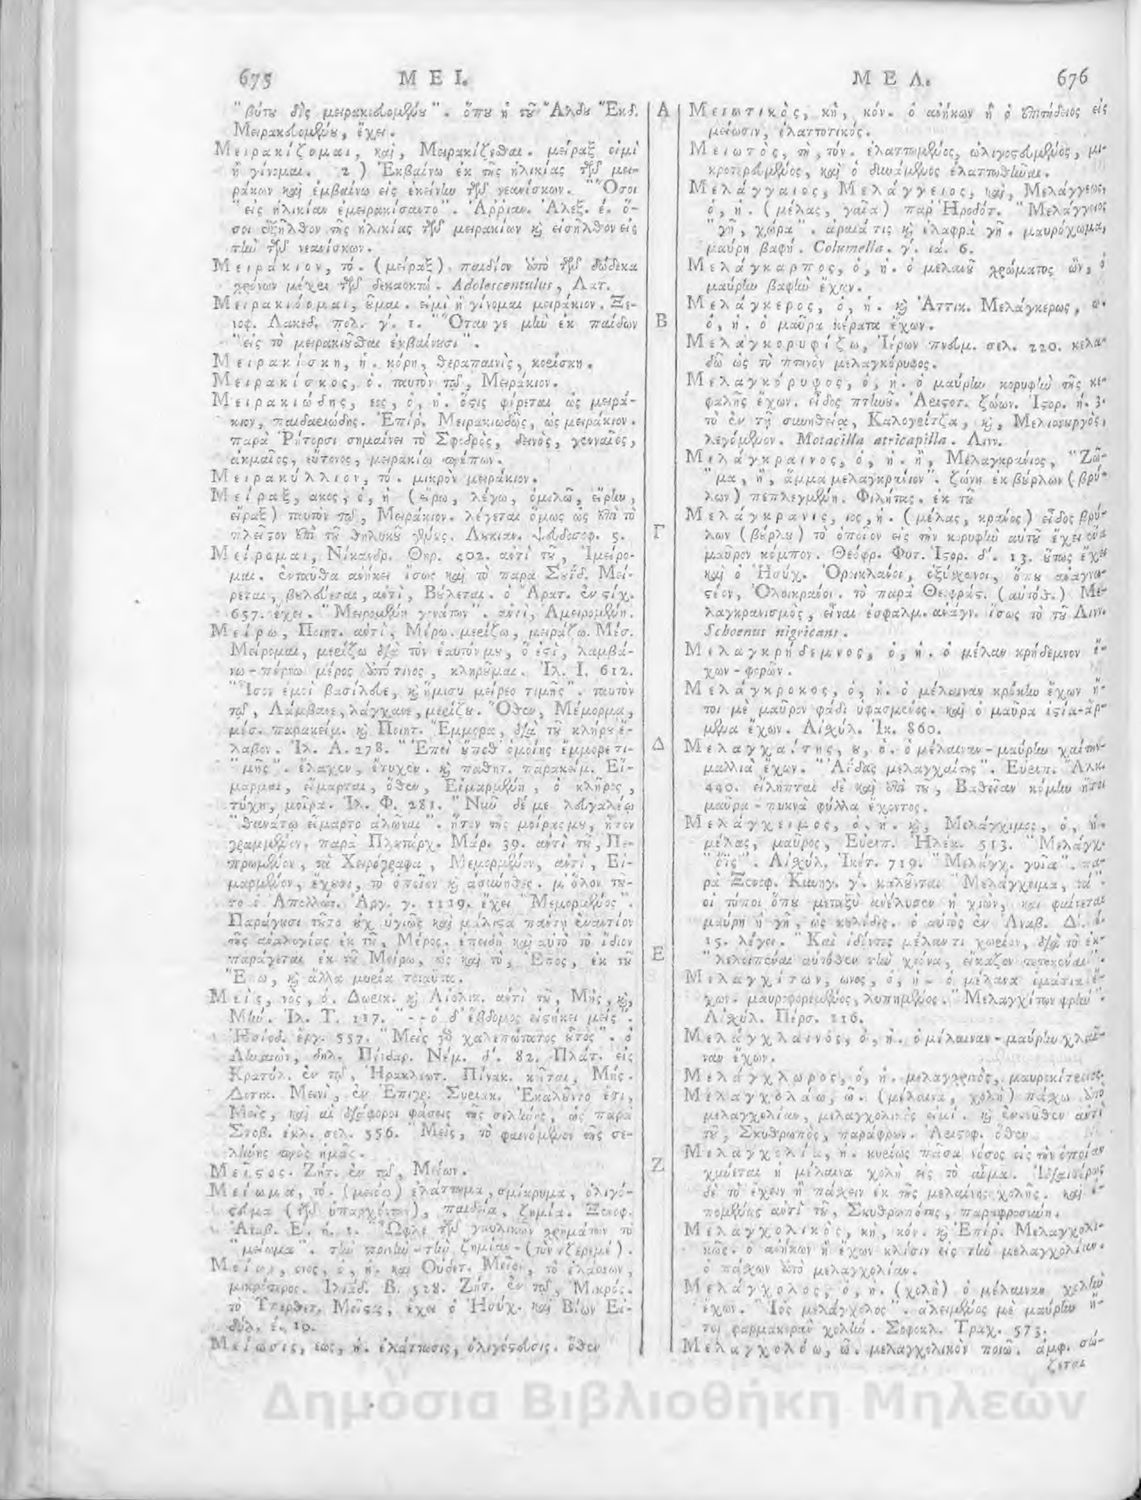 675 ΜΕΙ.
"βότυ δὶς μειρακιδομένου". ὅπου ἡ τοῦ Ἄλδου Ἔκδ.
ἔχει.
Μειρακίζομαι, καὶ, Μειρακίζεσθαι. μείραξ εἰμὶ
ἢ γίνομαι. 2) Ἐκβαίνω ἐκ τῆς ἡλικίας τῶν μει-
ράκων καὶ ἐμβαίνω εἰς ἐκείνην τῶν νεανίσκων. "Ὅσοι
"εἰς ἡλικίαν ἐμειρακίσαντο". Ἀῤῥιαν. Ἀλεξ. ὅ-
σοι ἐξῆλθον τῆς ἡλικίας τῶν μειρακίων καὶ εἰσῆλθον εἰς
τὴν τῶν νεανίσκων.
Μειράκιον, τό. (μείραξ). παιδίον ἀπὸ τῶν δώδεκα
χρόνων μέχρι τῶν δεκαοκτώ. Adolescentulus, Λατ.
Μειρακιόομαι, οῦμαι. εἰμὶ ἢ γίνομαι μειράκιον. Ξε-
νοφ. Λακεδ. πολ. γ'. 1. "Ὅταν γε μὴν ἐκ παίδων
"εἰς τὸ μειρακιοῦσθαι ἐκβαίνωσι".
Μειρακίσκη, ἡ. κόρη, θεραπαινὶς, κορίσκη.
Μειρακίσκος, ὁ. ταυτὸν τῷ, Μειράκιον.
Μειρακιώδης, εος, ὁ, ἡ. ὅστις φέρεται ὡς μειρά-
κιον, παιδαριώδης. Ἐπίρ. Μειρακιωδῶς, ὡς μειράκιον.
παρὰ Ῥήτορσι σημαίνει τὸ Σφοδρὸς, δεινὸς, γενναῖος,
ἀκμαῖος, εὔτονος, μειρακίῳ πρέπων.
Μειρακύλλιον, τό. μικρὸν μειράκιον.
Μεῖραξ, ακος, ὁ, ἡ (εἴρω, λέγω, ὁμιλῶ, εἴρην,
εἴραξ) ταυτὸν τῷ, Μειράκιον. λέγεται ὅμως ὡς ἐπὶ τὸ
πλεῖστον ἐπὶ τοῦ θηλυκοῦ γένους. Λυκιαν. Ψευδοσοφ. 5.
Μείρομαι, Νίκανδρ. Θηρ. 402. ἀντὶ τοῦ, Ἱμείρο-
μαι. ἐνταῦθα ἀνήκει ἴσως καὶ τὸ παρὰ Σουΐδ. Μεί-
ρεται, βουλεύεται, ἀντὶ, Βούλεται. ὁ Ἄρατ. ἐν στίχ.
657. ἔχει.
Μείρω, Ποιητ. ἀντὶ, Μέρω. μερίζω, μοιράζω. Μέσ.
Μείρομαι, μερίζω διὰ τὸν ἑαυτόν μου, ὅ ἐστι, λαμβά-
νω-πέρνω μέρος ἀπό τινος, κληροῦμαι. Ἰλ. Ι. 612.
"Ἶσον ἐμοὶ βασίλευε, καὶ ἥμισυ μείρεο τιμῆς". ταυτὸν
τῷ, Λάμβανε, λάγχανε, μερίζου. Ὅθεν, Μέμορμα,
μέσ. παρακείμ. καὶ Ποιητ. Ἔμμορα, διὰ τοῦ κλήρου ἔ-
λαβον. Ἰλ. Α. 278. "Ἐπεὶ οὔποθ' ὁμοίης ἔμμορε τι-
"μῆς". ἔλαχεν, ἔτυχεν. καὶ παθητ. παρακείμ. Εἵ-
μαρμαι, εἵμαρται, ὅθεν, Εἱμαρμένη, ὁ κλῆρος,
τύχη, μοῖρα. Ἰλ. Φ. 281. "Νῦν δέ με λευγαλέῳ
"θανάτῳ εἵμαρτο ἁλῶναι". ἦτον τῆς μοίρας μου, ἦτον
γραμμένον. παρὰ Πλουτάρχ. Μάρ. 39. ἀντὶ τοῦ, Πε-
πρωμένον, τὰ Χειρόγραφα, Μεμορμένον, ἀντὶ, Εἱ-
μαρμένον, ἔχουσι, τὸ ὁποῖον καὶ ἀσυνήθες. μ' ὅλον τοῦ-
το ὁ Ἀπολλών. Ἀργ. γ. 1129. ἔχει "Μεμορμένος".
Παράγουσι τοῦτο οὐχ ὑγιῶς καὶ μάλιστα πάντη ἐναντίον
τῆς ἀναλογίας ἐκ τοῦ, Μέρος. ἐπειδὴ καὶ αὐτὸ τὸ ἴδιον
παράγεται ἐκ τοῦ Μείρω, ὡς καὶ τὸ, Ἔπος, ἐκ τοῦ
Ἔπω, καὶ ἄλλα μυρία τοιαῦτα.
Μεὶς, νὸς, ὁ. Δωρικ. καὶ Αἰολικ. ἀντὶ τοῦ, Μὴς, καὶ,
Μήν. Ἰλ. Τ. 117. "--ὁ δ' ἕβδομος εἱστήκει μείς".
Ἡσίοδ. ἔργ. 557. "Μεὶς γὰρ χαλεπώτατος οὗτος". ὁ
Ληναιών, δηλ. Πίνδαρ. Νεμ. δ'. 82. Πλάτ. εἰς
Κρατύλ. ἐν τῷ, Ἡρακλεωτ. Πίνακ. κεῖται, Μής.
Δοτικ. Μεινὶ, ἐν Ἐπιγρ. Συριακ. Ἐκαλοῦντο ἔτι,
Μεῖς, καὶ αἱ διάφοροι φάσεις τῆς σελήνης, ὡς παρὰ
Στοβ. ἐκλ. σελ. 556. "Μεὶς, τὸ φαινόμενον τῆς σε-
λήνης πρὸς ἡμᾶς.
Μεῖστος. Ζήτ. ἐν τῷ, Μείων.
Μείωμα, τό. (μειόω) ἐλάττωμα, σμίκρυμα, ὀλιγό-
στευμα (τῶν ὑπαρχόντων), παιδεία, ζημία. Ξενοφ.
Ἀναβ. Ε. η. 1. "Ὦφλε τῶν γαυλικῶν χρημάτων τὸ
"μείωμα". τὴν ποινὴν-τὴν ζημίαν-(τὸν τζερεμέ).
Μείων, ονος, ὁ, ἡ. καὶ Οὐδετ. Μεῖον, τὸ ἐλάσσων,
μικρότερος. Ἰλιάδ. Β. 528. Ζήτ. ἐν τῷ, Μικρός.
τὸ Ὑπερθετ. Μεῖστος, ἔχει ὁ Ἡσύχ. καὶ Βίων Εἰ-
δύλ. ε. 10.
Μείωσις, εως, ἡ. ἐλάττωσις, ὀλιγόστευσις. ὅθεν
Α
Β
Γ
Δ
Ε
Ζ
ΜΕΛ. 676
Μειωτικὸς, κὴ, κόν. ὁ ἀνήκων ἢ ὁ ἐπιτήδειος εἰς
μείωσιν, ἐλαττοτικός.
Μειωτὸς, τὴ, τόν. ἐλαττωμένος, ὠλιγοστευμένος, μι-
κροτερευμένος, καὶ ὁ δυνάμενος ἐλαττωθῆναι.
Μελάγγαιος, Μελάγγειος, καὶ, Μελάγγεως,
ὁ, ἡ. (μέλας, γαῖα) παρ' Ἡροδότ. "Μελάγγειος
"γῆ, χώρα". ἀραιά τις καὶ ἐλαφρὰ γῆ. μαυρόχωμα,
μαύρη βαφή. Columella. γ'. ια'. 6.
Μελάγκαρπος, ὁ, ἡ. ὁ μελανοῦ χρώματος ὢν, ὁ
μαύρην βαφὴν ἔχων.
Μελάγκερος, ὁ, ἡ. καὶ Ἀττικ. Μελάγκερως, ω.
ὁ, ἡ. ὁ μαῦρα κέρατα ἔχων.
Μελαγκορυφίζω, Ἱέρων πνευμ. σελ. 220. κελα-
δῶ ὡς τὸ πτηνὸν μελαγκόρυφος.
Μελαγκόρυφος, ὁ, ἡ. ὁ μαύρην κορυφὴν τῆς κε-
φαλῆς ἔχων. εἶδος πτηνοῦ. Ἀριστοτ. ζώων. Ἱστορ. η. 3.
τὸ ἐν τῇ συνηθείᾳ, Καλογρίτζα, καὶ, Μελισουργὸς,
λεγόμενον. Motacilla atricapilla. Λιν.
Μελάγκραινος, ὁ, ἡ. ἢ, Μελαγκράνιος, "Ζῶ-
"μα, ἢ, ἅμμα μελαγκραίνον". ζώνη ἐκ βύρλων (βρύ-
λων) πεπλεγμένη. Φιλήτας. ἐκ τοῦ
Μελάγκρανις, ιος, ἡ. (μέλας, κράνος) εἶδος βρύ-
λων (βύρλου) τὸ ὁποῖον εἰς τὴν κορυφὴν αὐτοῦ ἔχει ἕνα
μαῦρον κόμπον. Θεόφρ. Φυτ. Ἱστορ. δ'. 13. οὕτως ἔχει
καὶ ὁ Ἡσύχ.
λαγκρανισμὸς, εἶναι ἐσφαλμ. ἀνάγν. ἴσως τὸ τοῦ Λινν.
Schoenus nigricans.
Μελαγκρήδεμνος, ὁ, ἡ. ὁ μέλαν κρήδεμνον ἔ-
χων-φορῶν.
Μελάγκροκος, ὁ, ἡ. ὁ μέλαιναν κρόκην ἔχων ἤ-
τοι μὲ μαῦρον φάδι ὑφασμένος. καὶ ὁ μαῦρα ἱστία-ἄρ-
μενα ἔχων. Αἰσχύλ. Ἱκ. 860.
Μελαγχαίτης, ου, ὁ. ὁ μέλαιναν-μαύρην χαίτην-
μαλλιὰ ἔχων. "Ἀΐδας μελαγχαίτης". Εὐριπ. Ἄλκ.
440. εἴληπται δὲ καὶ ἐπὶ τοῦ, Βαθεῖαν κόμην ἤτοι
μαῦρα-πυκνὰ φύλλα ἔχοντος.
Μελάγχειμος, ὁ, ἡ. καὶ, Μελάγχιμος, ὁ, ἡ.
μέλας, μαῦρος, Εὐριπ. Ἠλεκ. 513. "Μελάγχ.
"ὄϊς". Αἰσχύλ. Ἱκέτ. 719. "Μελάγχ. γυῖα". πα-
ρὰ Ξενοφ. Κυνηγ. γ'. καλοῦνται "Μελάγχειμα, τὰ".
οἱ τόποι ὅπου μεταξὺ ἀνέλυσεν ἡ χιὼν, καὶ φαίνεται
μαύρη ἡ γῆ, ὡς κηλίδες. ὁ αὐτὸς ἐν Ἀναβ. Δ'. ε.
15. λέγει. "Καὶ ἰδόντες μέλαν τι χωρίον, διὰ τὸ ἐκ-
"λελοιπέναι αὐτόθεν τὴν χιόνα, εἴκαζον τετηκέναι".
Μελαγχίτων, ωνος, ὁ, ἡ. ὁ μέλανα ἱμάτια ἔ-
χων. μαυροφορεμένος, λυπημένος. "Μελαγχίτων φρήν".
Αἰσχύλ. Πέρσ. 116.
Μελάγχλαινος, ὁ, ἡ. ὁ μέλαιναν-μαύρην χλαῖ-
ναν ἔχων.
Μελάγχλωρος, ὁ, ἡ. μελαγχροινὸς, μαυροκίτρινος.
Μελαγχολάω, ῶ. (μέλαινα, χολὴ) πάσχω ἀπὸ
μελαγχολίαν, μελαγχολικὸς εἰμί. καὶ ἐντεῦθεν ἀντὶ
τοῦ, Σκυθρωπὸς, παράφρων. Ἀριστοφ. ὅθεν
Μελαγχολία, ἡ. κυρίως πᾶσα νόσος εἰς τὴν ὁποίαν
χύνεται ἡ μέλαινα χολὴ εἰς τὸ αἷμα. Ἰδιαιτέρως
δὲ τὸ ἔχειν ἢ πάσχειν ἐκ τῆς μελαίνης χολῆς. καὶ ἑ-
πομένως ἀντὶ τοῦ, Σκυθρωπότης, παραφροσύνη.
Μελαγχολικὸς, κὴ, κόν. καὶ Ἐπίρ. Μελαγχολι-
κῶς. ὁ ἀνήκων ἢ ἔχων κλίσιν εἰς τὴν μελαγχολίαν.
ὁ πάσχων ἀπὸ μελαγχολίαν.
Μελάγχολος, ὁ, ἡ. (χολὴ) ὁ μέλαιναν χολὴν
ἔχων. "Ἰὸς μελάγχολος". ἀλειμμένος μὲ μαύρην ἤ-
τοι φαρμακερὰν χολήν. Σοφοκλ. Τραχ. 573.
Μελαγχολόω, ῶ. μελαγχολικὸν ποιῶ. ἀμφ. σώ-
ζεται
Δημόσια Βιβλιοθήκη Μηλεών